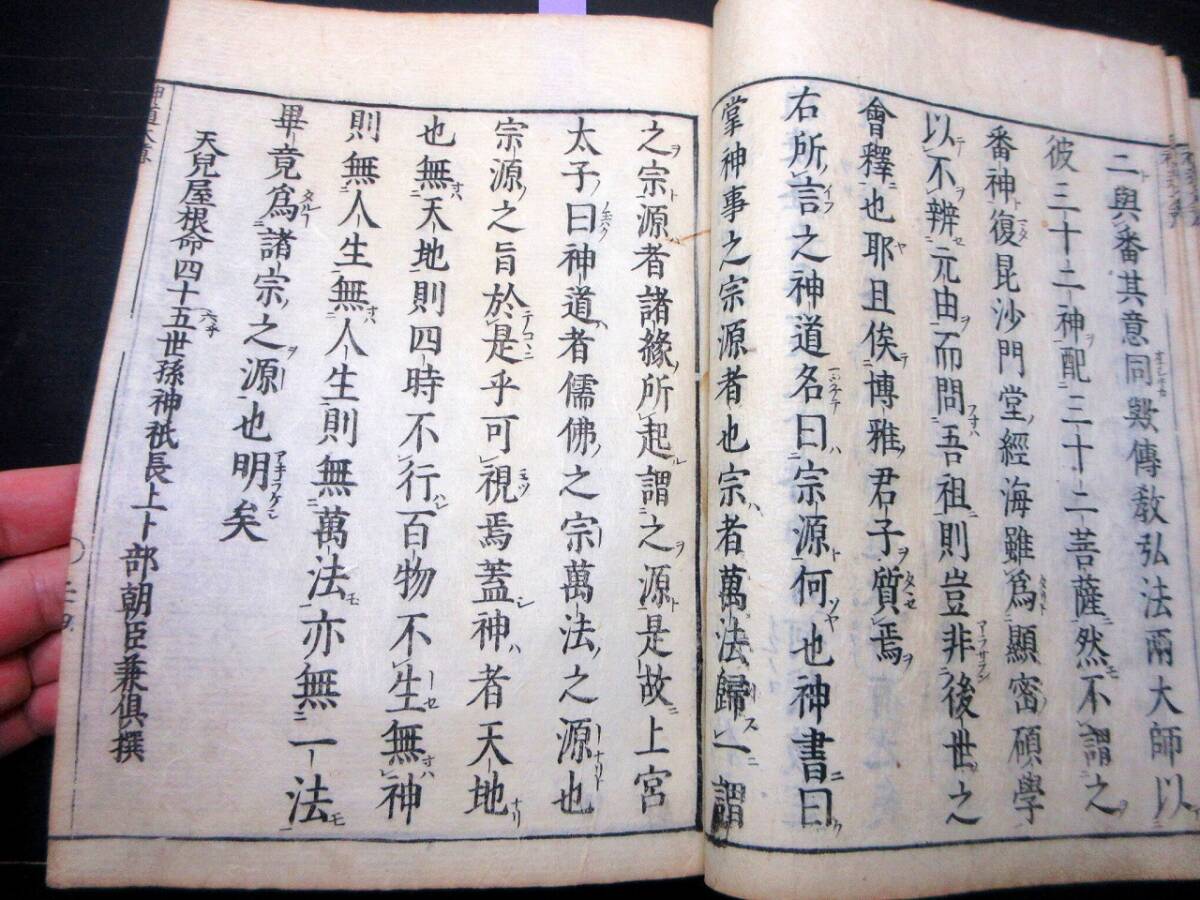 二與番其意同歟傳教弘法兩大師以
彼三十二神配三十二菩薩然不謂之
番神復昆沙門堂經海雖爲顯密碩學
以不辨元由而問吾祖則豈非後世之
會釋也耶且俟博雅君子質焉
右所言之神道名曰宗源何也神書曰
掌神事之宗源者也宗者萬法歸一謂
之宗源者諸緣所起謂之源是故上宮
太子曰神道者儒佛之宗萬法之源也
宗源之旨於是乎可視焉蓋神者天地
也無天地則四時不行百物不生無神
則無人生無人生則無萬法亦無一法
畢竟爲諸宗之源也明矣
天兒屋根命四十五世孫神祇長上卜部朝臣兼俱撰